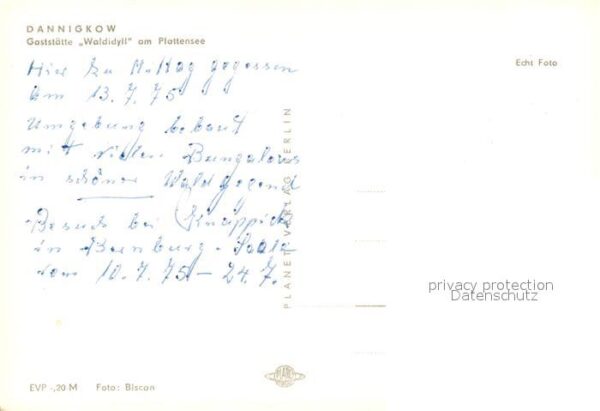 DANNIGKOW
Gaststätte „Waldidyll" am Plattensee
Echt Foto
Hier zu Mittag gegessen
am 13.7.75
Umgebung bebaut
mit vielen Bungalows
in schöner Waldgegend
Besuch bei
in Bernburg - Saale
vom 10.7.75 – 24.7.
PLANET-VERLAG BERLIN
privacy protection
Datenschutz
PLANET
EVP -,20 M Foto: Biscan